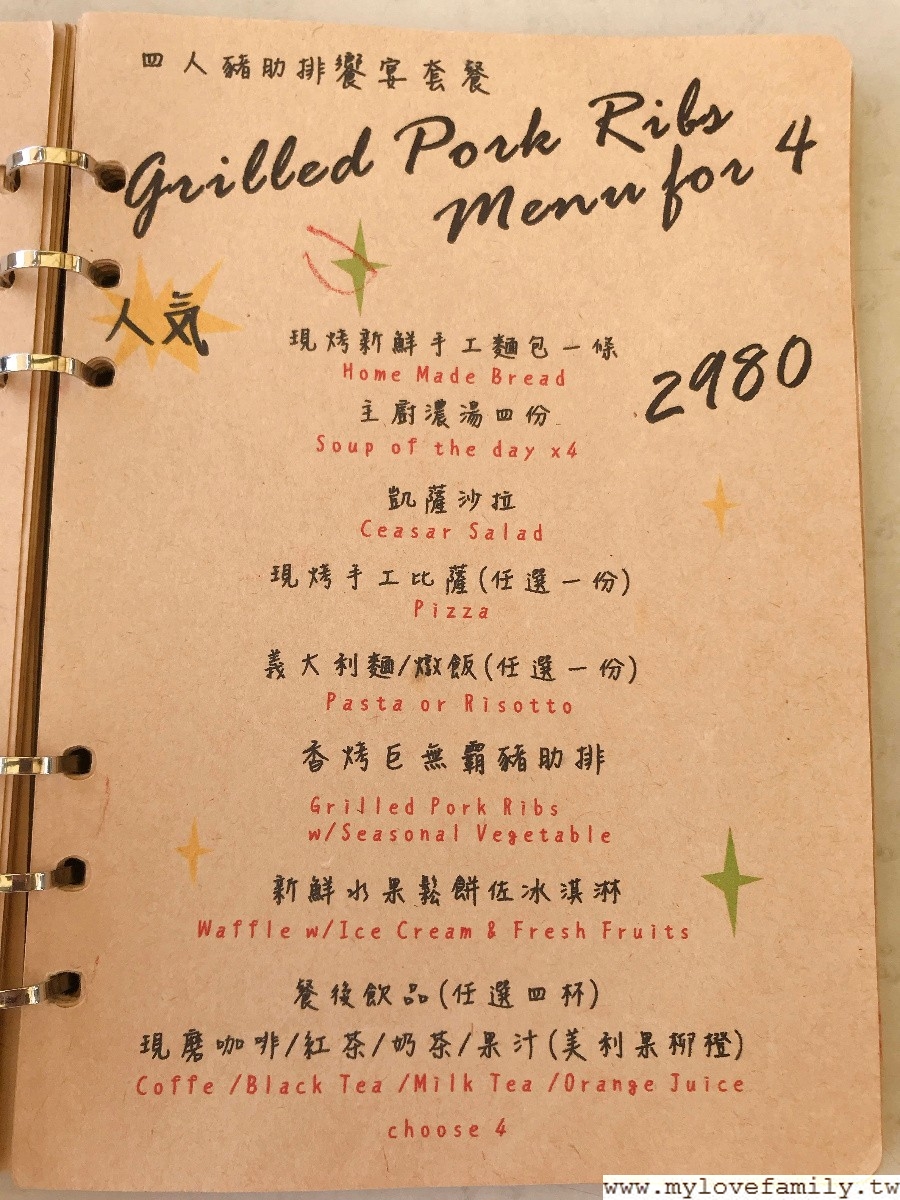 四人豬肋排饗宴套餐
Grilled Pork Ribs
Menu for 4
人気
現烤新鮮手工麵包一條
Home Made Bread
2980
主廚濃湯四份
Soup of the day x4
凱薩沙拉
Ceasar Salad
現烤手工比薩(任選一份)
Pizza
義大利麵/燉飯(任選一份)
Pasta or Risotto
香烤巨無霸豬肋排
Grilled Pork Ribs
w/Seasonal Vegetable
新鮮水果鬆餅佐冰淇淋
Waffle w/Ice Cream & Fresh Fruits
餐後飲品(任選四杯)
現磨咖啡/紅茶/奶茶/果汁(美利果柳橙)
Coffe /Black Tea /Milk Tea /Orange Juice
choose 4
www.mylovefamily.tw